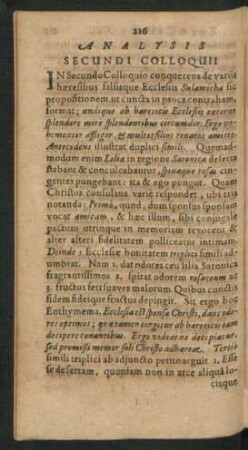 216
ANALYSIS
SECUNDI COLLOQUII
IN Secundo Colloquio conquerens de variis
hæresibus falsisque Ecclesiis Sulamitha sic
propositionem, ut cuncta in pauca contraham,
format; undique ab hæreticis Ecclesiæ externo
splendore mirè splendentibus circumdor: Ergo ve-
hementer affligor, & multos filios renatos amitto.
Antecedens illustrat duplici simili. Quemad-
modum enim Lilia in regione Saronica deserta
stabant & conculcabantur, spinæque rosas cin-
gentes pungebant: ita & ego pungor. Quam
Christus consulans variè respondet, ubi tria
notanda; Primò, quod, dum sponsus sponsam
vocat amicam, & hæc illum, sibi conjugale
pactum utrinque in memoriam revocent &
alter alteri fidelitatem polliceatur intimam.
Deinde Ecclesiæ bonitatem triplici simili ad-
umbrat. Nam 1. dat odores ceu lilia Saronica
fragrantissimos 2. spitat odorem rosaceum ac
3. fructus fert suaves malorum. Quibus cunctis
fidem fideique fructus depingit. Sit ergo hoc
Enthymema. Ecclesia est sponsa Christi, dans odo-
res optimos; quæ tamen cingitur ab hæreticis eam
decipere conantibus. Ergo videat ne decipiatur,
sed promissi memor soli Christo adhæreat. Tertiò
simili triplici ab adjuncto petito arguit 1. Esse
se desertam, quoniam non in arce aliqua lo-
cisque